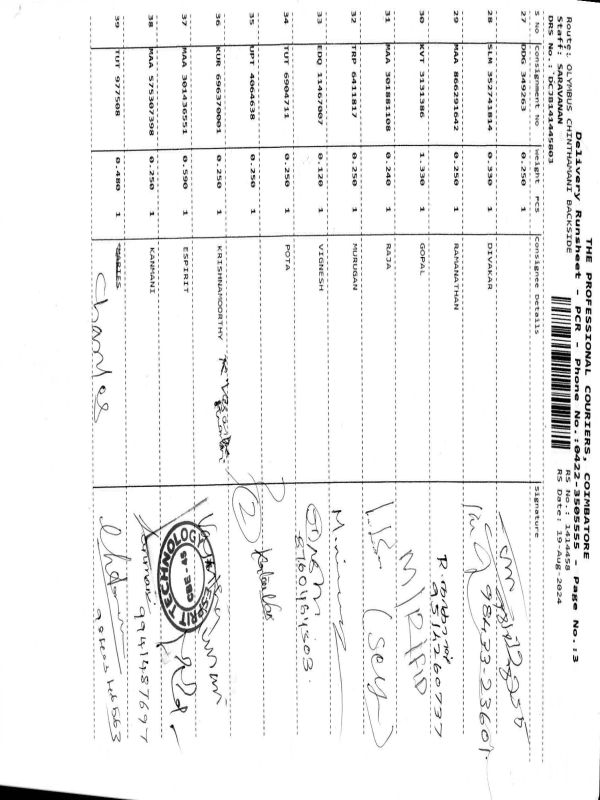 THE PROFESSIONAL COURIERS, COIMBATORE
Delivery Runsheet - PCR - Phone No.:0422-3505555 - Page No.:3
Route: OLYMBUS CHINTHAMANI BACKSIDE RS No.: 1414458
Staff: SARAVANAN RS Date: 19-Aug-2024
DRS No.: DCJB141445803
S No Consignment No Weight PCS Consignee Details Signature
27 DDG 349263 0.250 1
28 SLM 352741814 0.330 1 DIVAKAR
98433-23601
29 MAA 866291642 0.250 1 RAMANATHAN
9514260737
30 KVT 3131386 1.330 1 GOPAL
31 MAA 301881108 0.240 1 RAJA
32 TRP 6411817 0.250 1 MURUGAN
33 EDQ 11467007 0.120 1 VIGNESH
34 TUT 6904711 0.250 1 POTA
35 UPT 4064638 0.250 1
36 KUR 696370001 0.250 1 KRISHNAMOORTHY
37 MAA 301430551 0.590 1 ESPIRIT
ESPRIT TECHNOLOGY
CBE-45
38 MAA 575307398 0.250 1 KANMANI
Kanmani 9941487697
39 TUT 977508 0.480 1 CHARLES
Charles